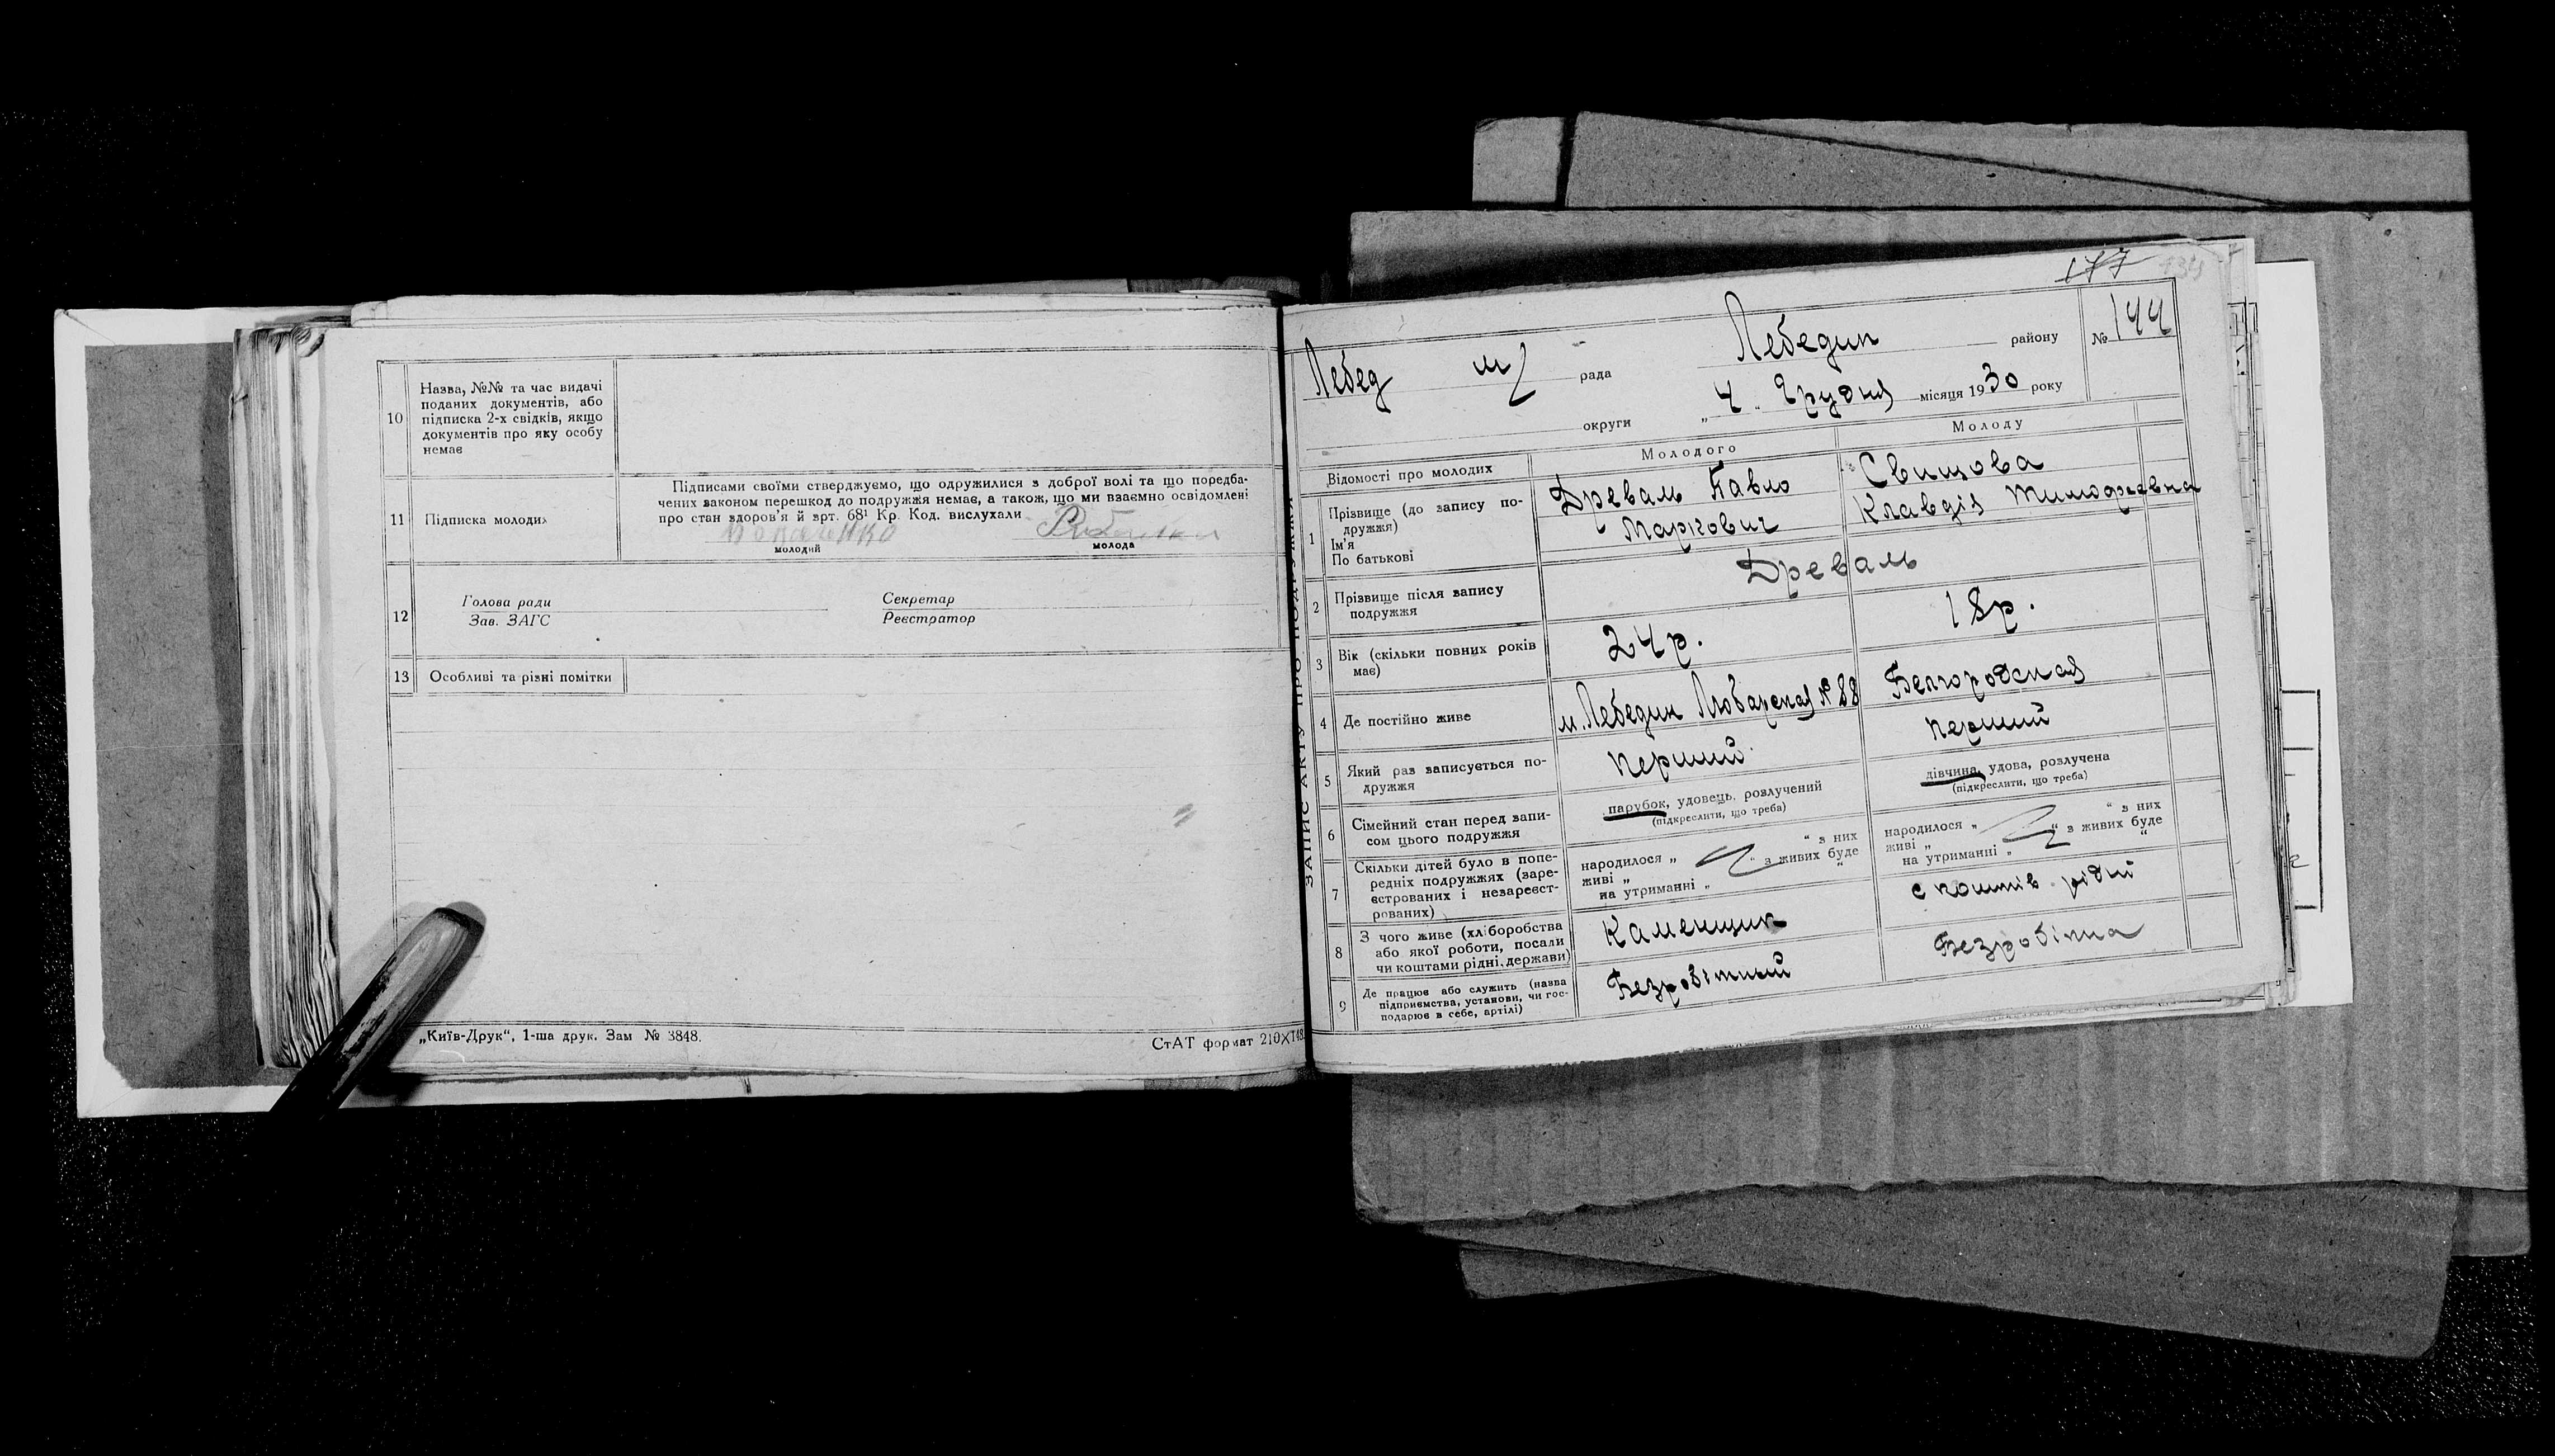 10
Назва, №№ та час видачі
поданих документів, або
підписка 2-х свідків, якщо
документів про яку особу
немає
11
Підписка молодих
Підписами своїми стверджуємо, що одружилися з доброї волі та що поредба-
чених законом перешкод до подружжя немає, а також, що ми взаємно освідомлені
про стан здоров'я й врт. 68¹ Кр. Код. вислухали
молодий
молода
12
Голова ради
Зав. ЗАГС
Секретар
Реєстратор
13
Особливі та різні помітки
„Київ-Друк“, 1-ша друк. Зам № 3848.
СтАТ формат 210×148
ЗАПИС АКТУ ПРО ПОДРУЖЖЯ
177
Лебед м рада Лебедин району № 144
округи „4“ Грудня місяця 1930 року
Відомості про молодих
Молодого
Молоду
1
Прізвище (до запису по-
дружжя)
Ім'я
По батькові
Древаль Павло
Маркович
Свищова
Клавдія Тимофеевна
2
Прізвище після запису
подружжя
Древаль
3
Вік (скільки повних років
має)
24р.
18р.
4
Де постійно живе
м. Лебедин № 88
5
Який раз записується по-
дружжя
перший
перший
6
Сімейний стан перед запи-
сом цього подружжя
парубок, удовець, розлучений
(підкреслити, що треба)
дівчина, удова, розлучена
(підкреслити, що треба)
7
Скільки дітей було в попе-
редніх подружжях (заре-
єстрованих і незареєст-
рованих)
народилося „ “ з них
живі „ “ з живих буде
на утриманні „ “
народилося „ “ з них
живі „ “ з живих буде
на утриманні „ “
8
З чого живе (хліборобства
або якої роботи, посади
чи коштами рідні, держави)
Каменщик
с коштів рідні
9
Де працює або служить (назва
підприємства, установи, чи гос-
подарює в себе, артілі)
Безробітный
Безробітна